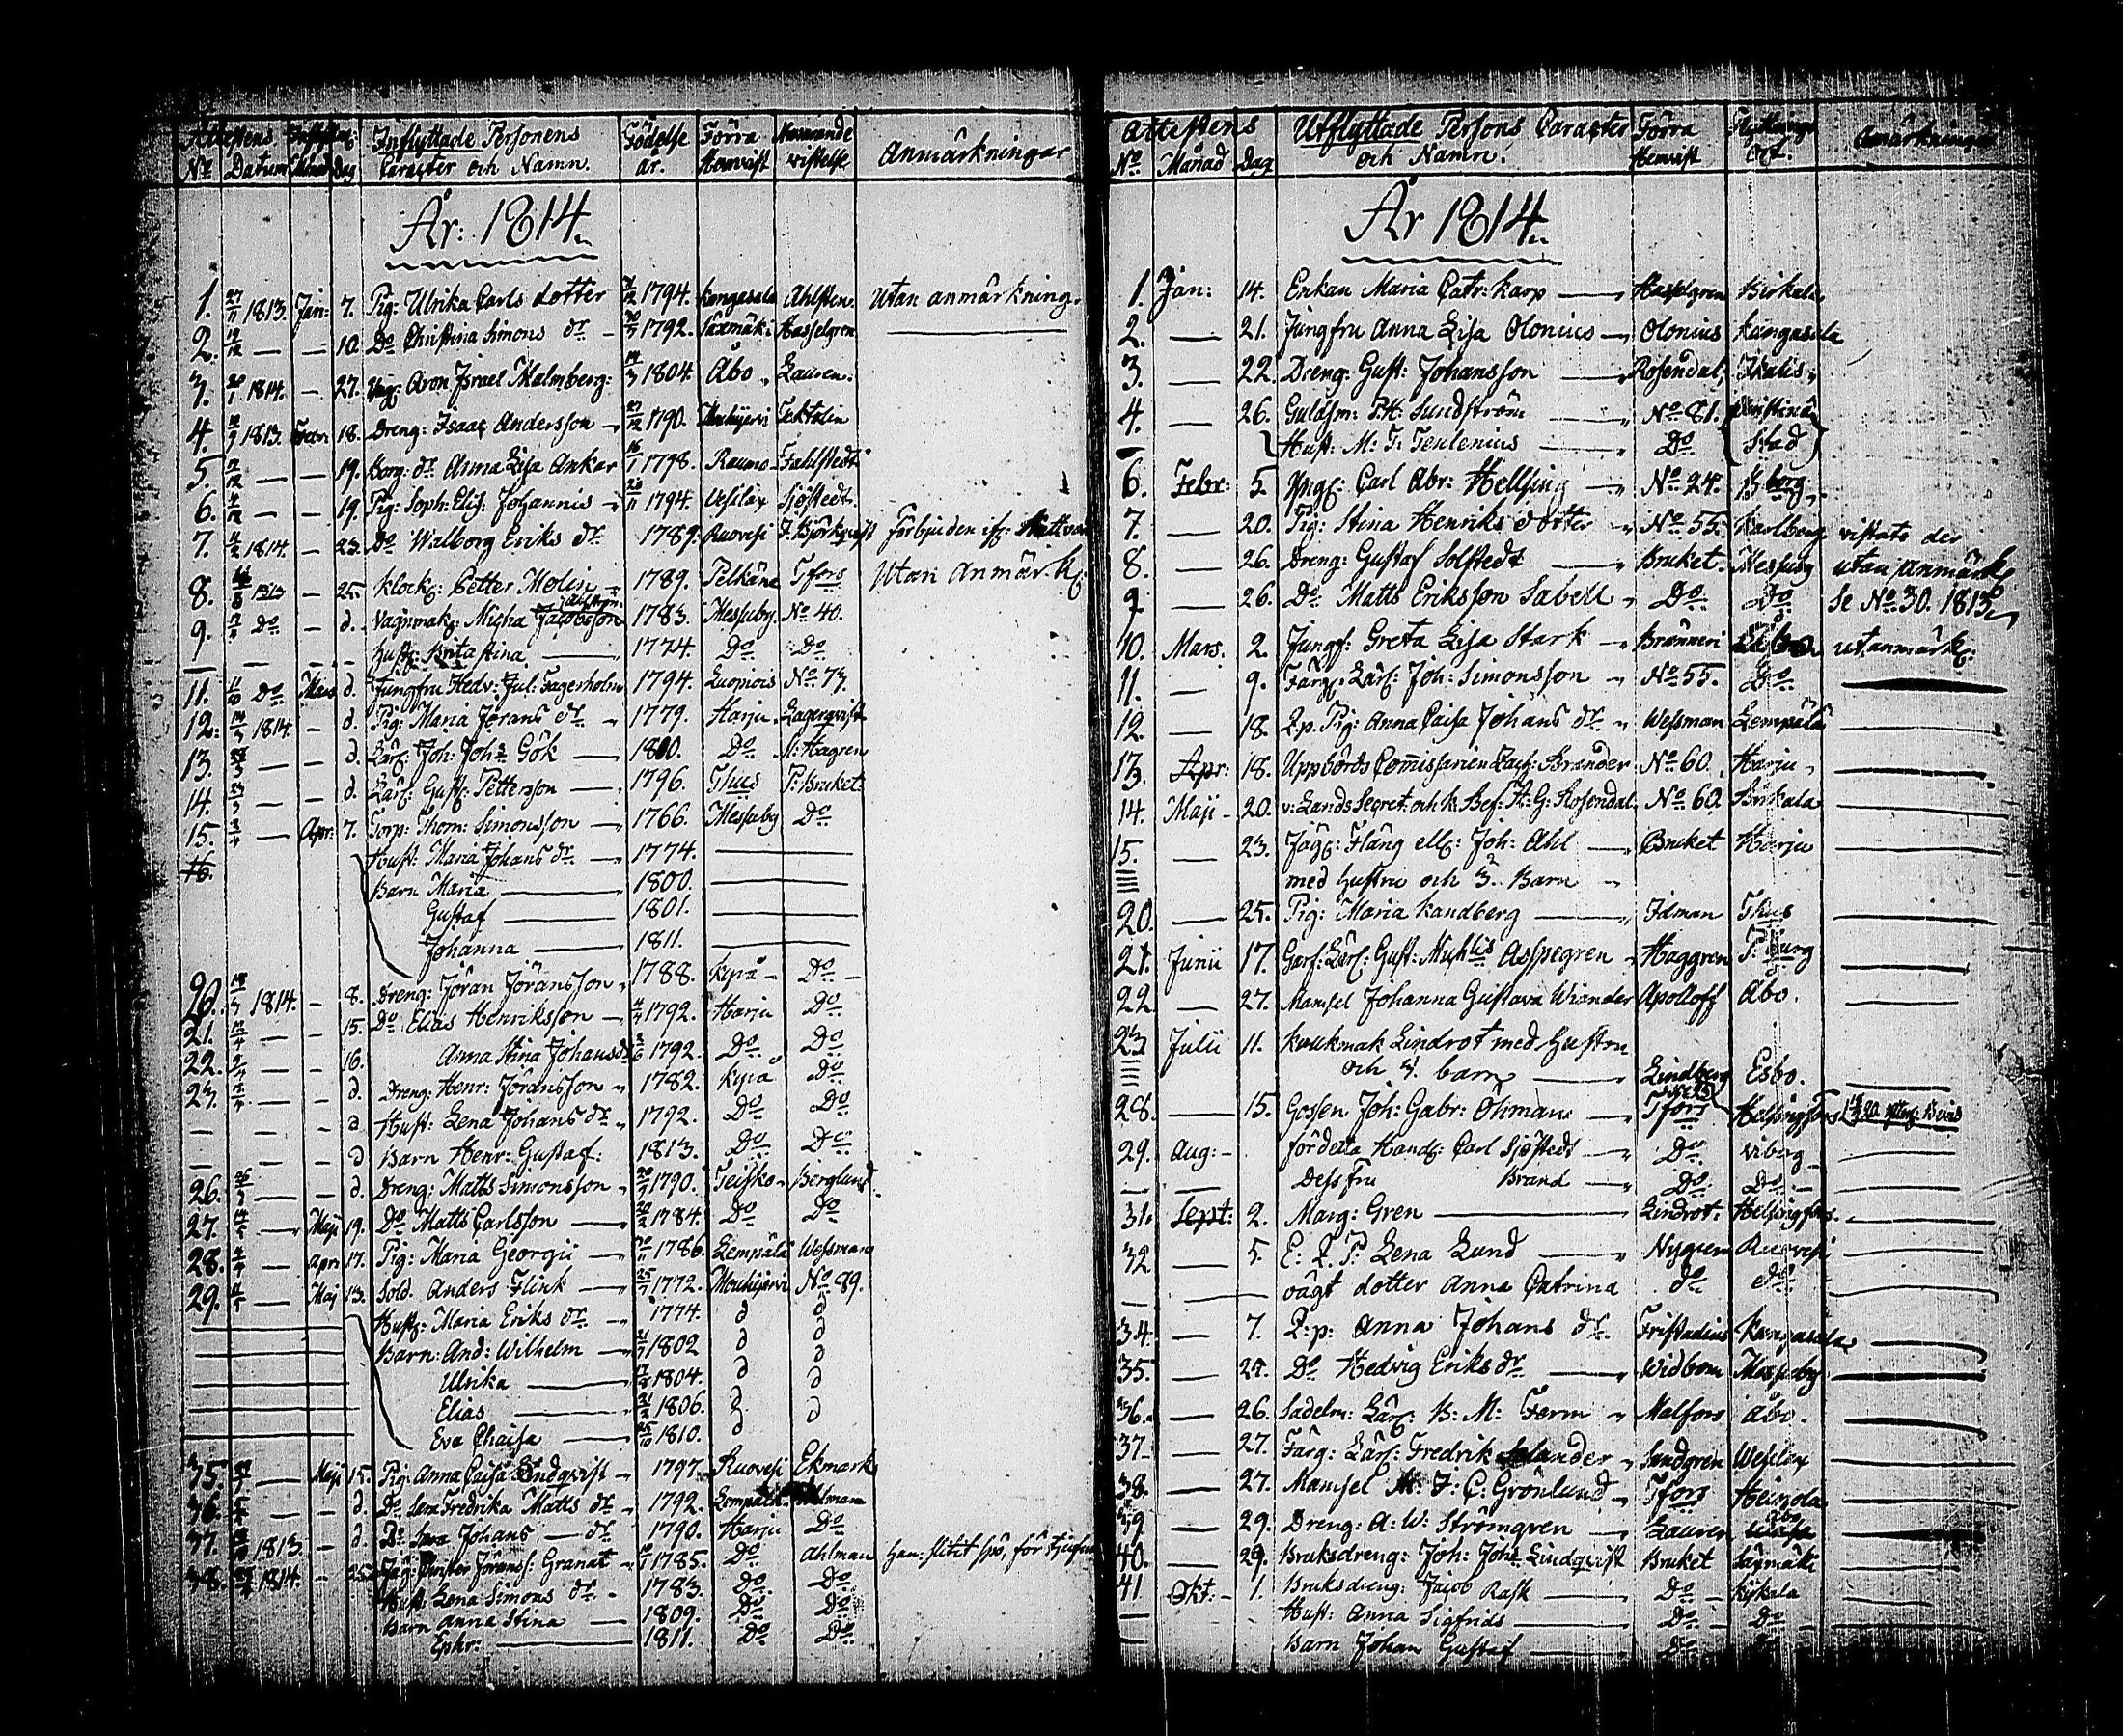 Attestens Inflyttade Personens Födelse Förra Närvarande Anmärkningar
No. Datum Månad Dag Caracter och Namn. år. Hemvist vistelse
År: 1814.
1. 27/11 1813. Jan: 7. Pig: Ulrika Carls dotter 1794. Kangasala Ahlsten. Utan anmärkning.
2. 19/12 — — 10. Do Christina Simons dr. 1792. Säxmäki Hasselgren
3. 20/1 1814. — 27. Yng: Aron Israel Malmberg: 14/3 1804. Åbo Lauren.
4. 1813. Febr: 18. Dreng: Isaac Andersson 27/12 1790. Mouhijervi
5. — — 19. Borg: dr. Anna Lisa Ankar 16/1 1798. Raumo Fahlstedt
6. — — 19. Pig: Soph: Elis: Johannis 1794. Vesilax Sjöstedt.
7. 4/2 1814. — 23. Do Walborg Eriks dr. 1789. Ruovesi J. Björkqvist Förbjuden
8. 1813 — 25. Klock: Petter Molin 1789. Pelkäne Tfors Utan Anmärk:
9. Do — d. Vagnmak: Micha Jacobsson 1783. Messuby. No 40.
— — — — Hust: Brita Stina 1774. Do Do
11. Do Mars d. Jungfru Hedv: Jul: Fagerholm 1794. Luopiois No 73.
12. 1814. — d. Pig: Maria Jörans dr. 1779. Harju Lagerqvist
13. — — d. Lärl: Joh: Johs Gök 1800. Do N: Hagren
14. — — d. Lärl: Gust: Pettersson 1796. Thus P: Bruket
15. — Apr: 7. Torp: Thom: Simonsson 1766. Messuby Do
16. Hust: Maria Johans dr. 1774.
Barn Maria 1800.
Gustaf 1801.
Johanna 1811.
20. 1814. — 8. Dreng: Jöran Jöransson 1788. Kyrå Do
21. — — 15. Do Elias Henriksson 1792. Harju Do
22. — — 16. Anna Stina Johansdr 1792. Do Do
23. — — d. Dreng: Henr: Jöransson 1782. Kyrå Do
— — — d Hust: Lena Johans dr. 1792. Do Do
— — — d Barn Henr: Gustaf: 1813. Do Do
26. — — d. Dreng: Matts Simonsson 1790. Teisko Berglund
27. — Maji 19. Do Matts Carlsson 1784. Do Do
28. — Apri 17. Pig: Maria Georgii 1786. Lempälä Wessman
29. — Maj 13. Sold. Anders Flink 1772. Mouhijervi No 89.
Hust: Maria Eriks dr. 1774. d d
Barn: And: Wilhelm 1802 d d
Ulrika 1804. d d
Elias 1806. d d
Eva Chaisa 1810. d
35. — Maji 15. Pig: Anna Caisa Lindqvist 1797. Ruovesi Ekmark
36. — — d. Do Fredrika Matts dr. 1792. Lempälä Ahlman
37. 1813. — d. Do Sara Johans dr 1790. Harju Do
38. 1814. — 25. Jäg: Christer Jöranss: Granat 1785. Do Ahlman
Hust: Lena Simons dr. 1783. Do Do
Barn Anna Stina 1809. Do Do
Ephr: 1811. Do Do
Attestens Utflyttade Persons Caracter Förra Flyttnings Anmärkningar
No Månad Dag och Namn. Hemvist Ort.
År 1814.
1. Jan: 14. Enkan Maria Catr: Karp Hasselgren Birkala
2. — 21. Jungfru Anna Lisa Olonius Olonius Kangasala
3. — 22. Dreng: Gust: Johansson Rosendal Ikalis
4. — 26. Guldsm: P.H: Sundström No 81. Christinä
— Hust: M: F: Tenlenius Do Stad
6. Febr: 5. Yng: Carl Abr: Hellsing No 24. Bborg
7. — 20. Pig: Stina Henriks dotter No 55. Karlberg vistats der
8. — 26. Dreng: Gustaf Solstedt Bruket. Messuby utan anmärk
9 — 26. Do Matts Eriksson Sabell Do Do Se No 30. 1813
10. Mars. 2. Jungf: Greta Lisa Stark Bränneri ut anmärk:
11. — 9. Färg: Lärl: Joh: Simonsson No 55. Do
12. — 18. Q.p. Pig: Anna Caisa Johans dr. Wessman Lempälä
13. Apr: 18. Uppbörds Comissarien Zach: Brander No 60. Harju
14. Maji 20. v: Lands Secret: och k: Bef: A: G: Rosendal No 60. Birkala
15. — 23. Jäg: Fläng ell: Joh: Ahl Bruket Harju
med hustru och 3 Barn
20. — 25. Pig: Maria Sandberg Idman Thus
21. Junii 17. Garf: Lärl: Gust: Michls Aspegren Haggren P: burg
22 — 27. Mamsel Johanna Gustava Wiander Apolloff Åbo.
23 Julii 11. Krukmak Lindrot med Hustru
och 3. barn Lindberg Esbo.
28. — 15. Gossen Joh: Gabr: Öhman Tfors Helsingfors
29. Aug: — fördetta Handl: Carl Sjöstedt Do viborg
— — Dess fru Brand Do Do
31. Sept: 2. Marg: Gren Lindrot: Helsingfors
32 — 5. E: Q. P: Lena Lund Nygren Ruovesi
— oägt dotter Anna Catrina do do
34. — 7. Q:p: Anna Johans dr. Fristadius Kangasala
35. — 27. Do Hedvig Eriks dr Widbom Messuby
36. — 26. Sadelm: Lärl: B: M: Ferm Malfors Åbo.
37. — 27. Färg: Lärl: Fredrik Selander Sandgren Wesilax
38. — 27. Mamsel M: F: C: Grönlund Tfors Heinola
39. — 29. Dreng: A: W: Strömgren Lauren Åbo
40. — 29. Bruksdreng: Joh: Johs Lindqvist Bruket Säxmäki
41 Okt: — 1. Bruksdreng: Jacob Rask Do Kykala
— Hust: Anna Sigfrids Do Do
— Barn Johan Gustaf Do